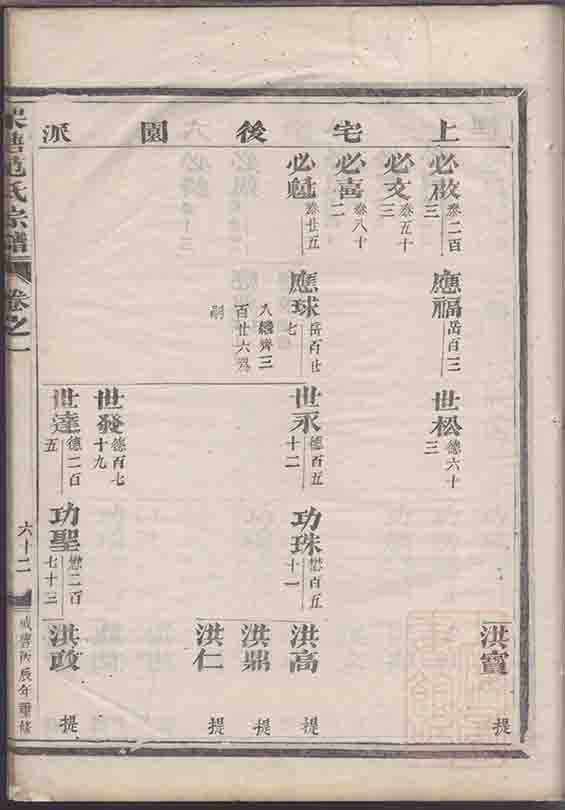 上宅後園派
必啟 泰二百三
必文 泰五十三
必喜 泰八十二
必魁 泰廿五
應福 岳百三
應球 岳百廿七
入繼齊三百廿六為嗣
世松 德六十三
世永 德百五十二
世發 德百七十九
世達 德二百五
功珠 懋百五十一
功聖 懋二百七十三
洪寶 提
洪高 提
洪鼎 提
洪仁 提
洪政 提
范氏宗譜
卷之一
六十二
咸豐丙辰年重修